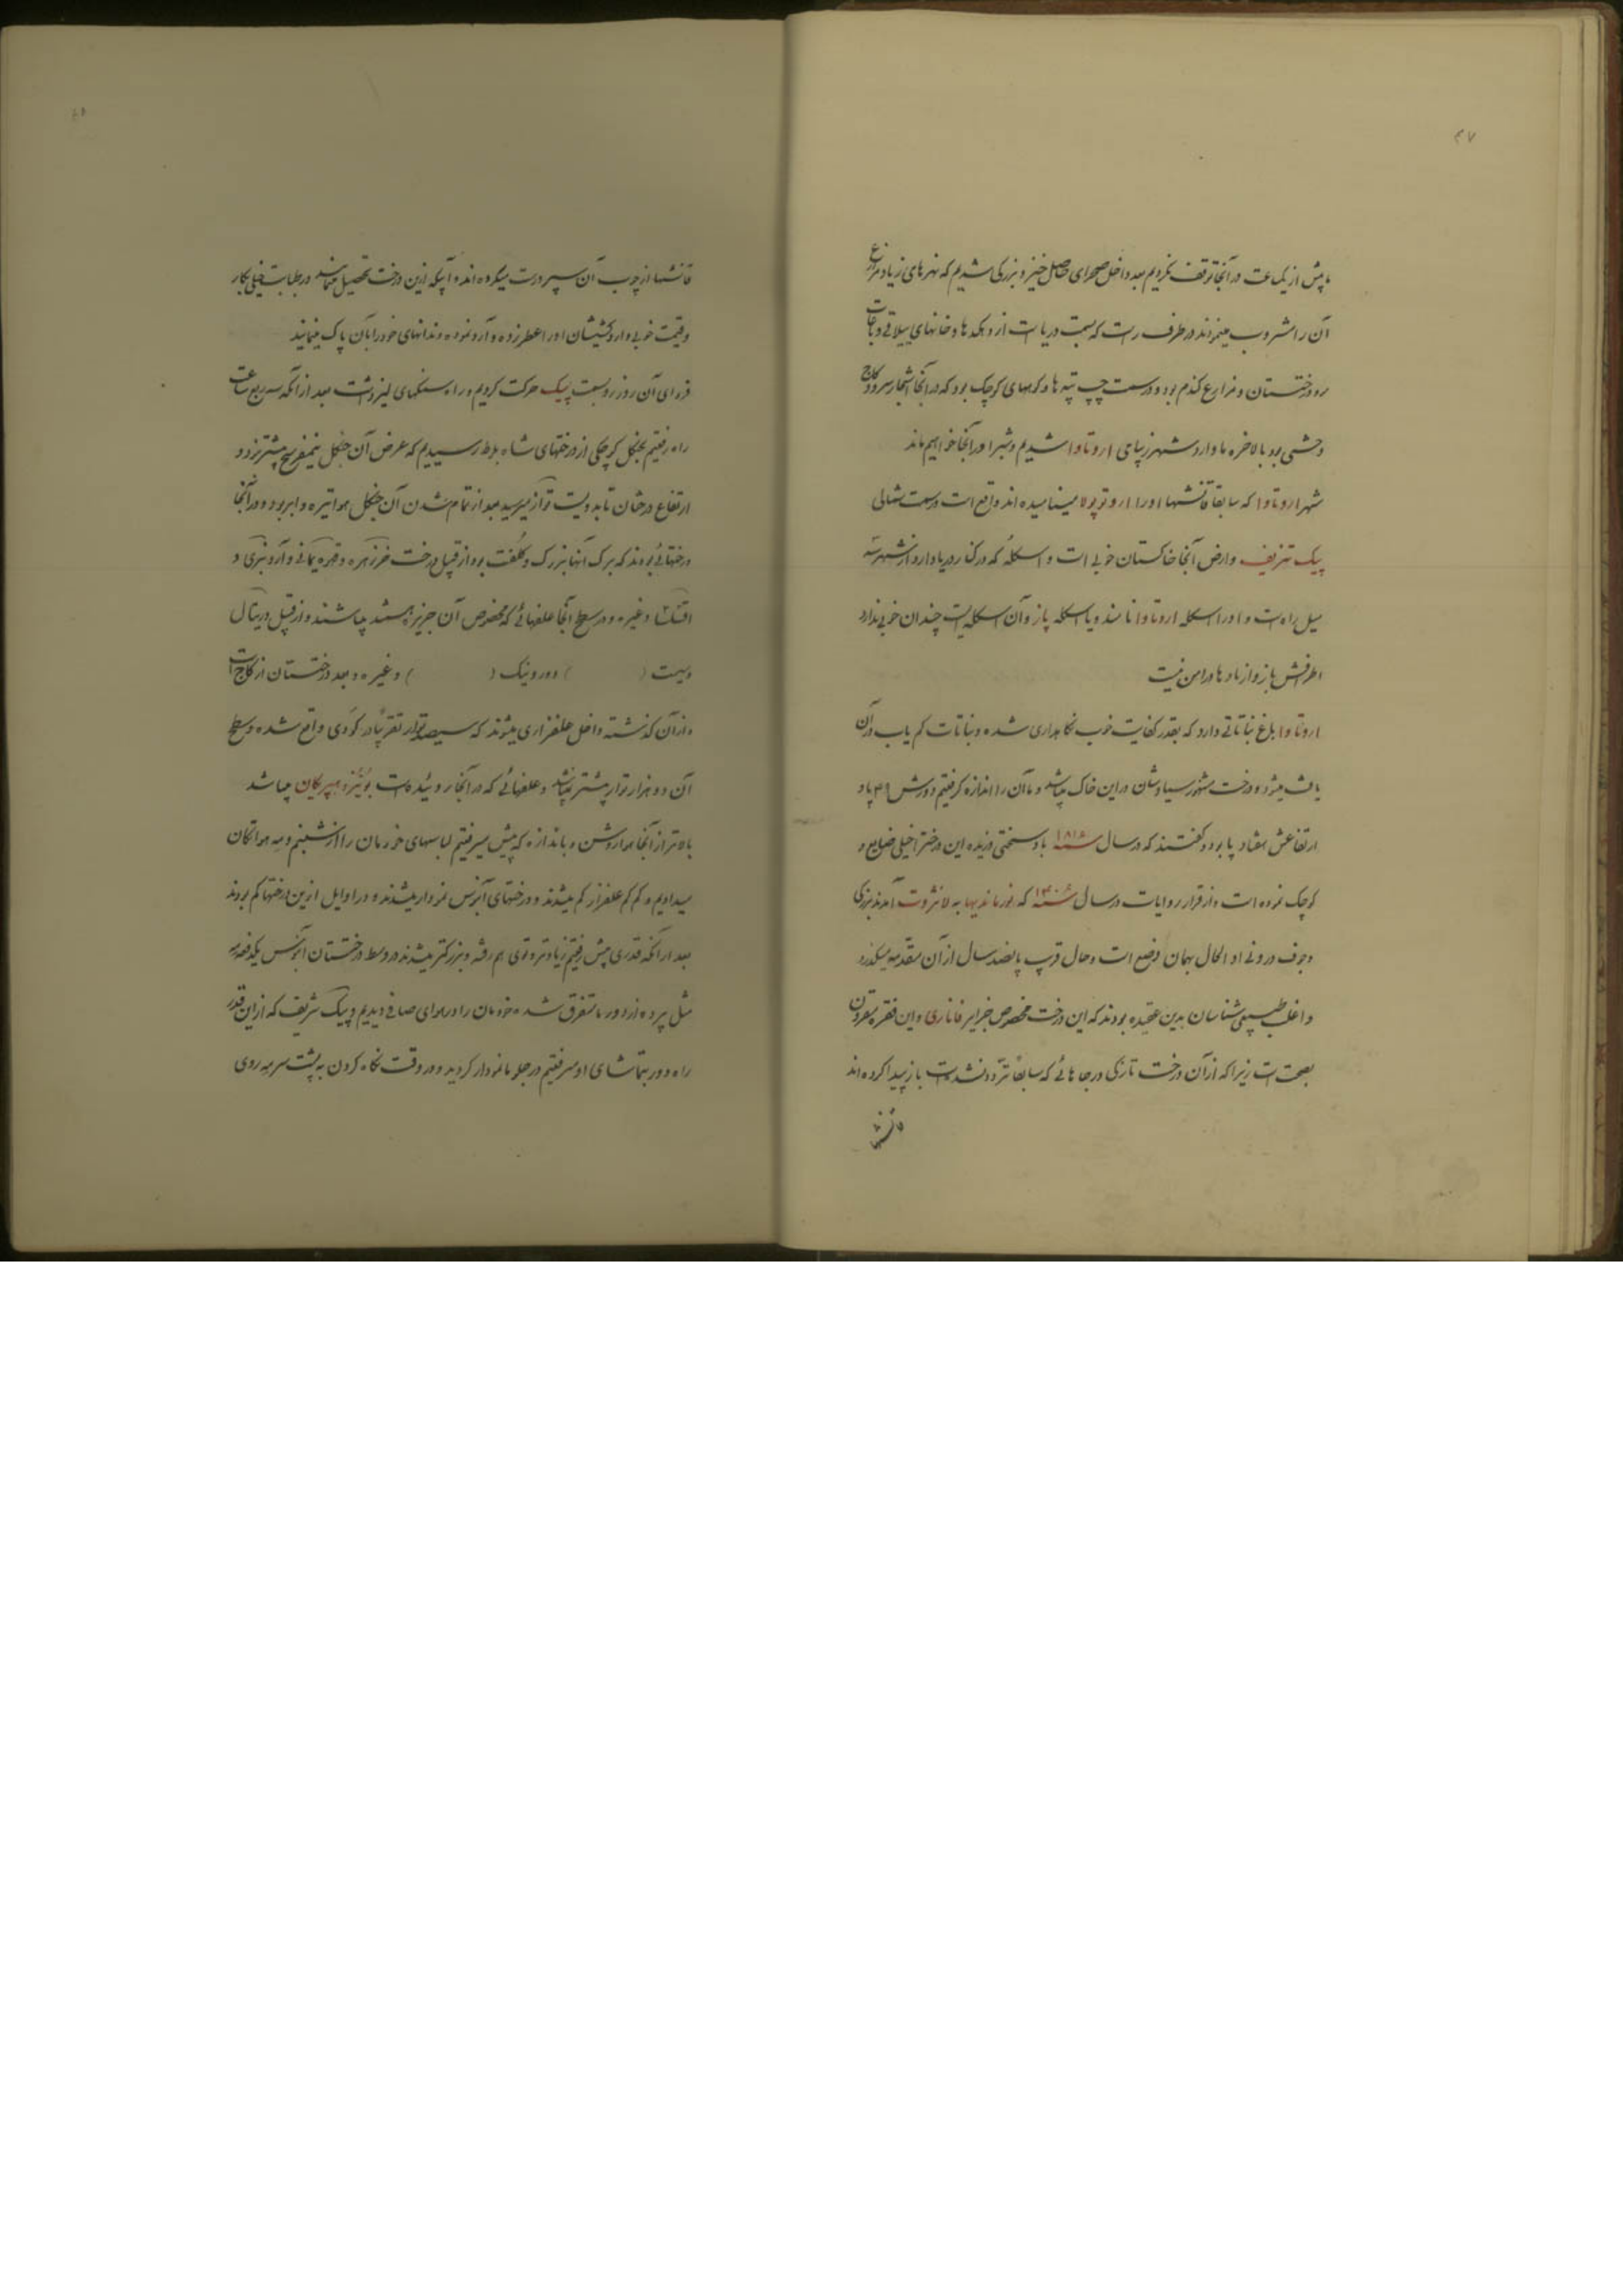 ۴۷
ما پیش از یکساعت در آنجا توقف نکردیم بعد داخل صحرای حاصل خیز و بزرگی شدیم که نهرهای زیاد مزارع
آن را مشروب مینمودند در طرف راست که سمت دریا است از دهکده ها و خانهای ییلاقی و باغات
و درختستان و مزارع گندم بود و در سمت چپ تپه ها و کوههای کوچک بود که در آنجا اشجار سرو و کاج
وحشی بود بالاخره ما وارد شهر زیبای اروتاوا شدیم و شب را در آنجا خواهیم ماند
شهر اروتاوا که سابقاً قانشها او را اروتوپولا مینامیده اند واقع است در سمت شمالی
پیک تنریف و ارض آنجا خاکستان خوبی است و اسکلهٔ که در کنار دریا دارد از شهر سه
میل راه است و او را اسکله اروتاوا نامند و یا اسکله پاز و آن اسکله ایست چندان خوبی ندارد
اطرافش باز و از بادها در امن نیست
اروتاوا باغ نباتاتی دارد که بقدر کفایت خوب نگاهداری شده و نباتات کم یاب در آن
یافت میشود و درخت مشهور سیاوشان در این خاک میباشد و ما آن را اندازه گرفتیم دورش ۴۹ پا و
ارتفاعش هفتاد پا بود و گفتند که در سال ۱۸۱۹ باد سختی وزیده این درخت را خیلی ضایع و
کوچک نموده است و از قرار روایات در سال که نورماندیها به لانثروت آمدند بزرگی
و جوف درونی او الحال بهمان وضع است و حال قریب پانصد سال از آن مقدمه میگذرد
و اغلب طبیعی شناسان بدین عقیده بودند که این درخت مخصوص جزایر قاناری و این فقره مقرون
بصحت است زیرا که از آن درخت تازگی در جاهائی که سابقاً تردد نشده است باز پیدا کرده اند
قانشها
قانشها از چوب آن سپر درست میکرده اند و آبیکه ازین درخت تحصیل مینمایند در طبابت خیلی بکار
و قیمت خوبی دارد کشیشان او را عطر زده و آرد نموده دندانهای خود را بآن پاک مینمایند
فردای آن روز رو بسمت پیک حرکت کردیم و راه سنگهای لیز داشت بعد از آنکه سه ربع ساعت
راه رفتیم بجنگل کوچکی از درختهای شاه بلوط رسیدیم که عرض آن جنگل نیمفرسخ بیشتر نبود و
ارتفاع درختان تا بدویست توآز میرسید بعد از تمام شدن آن جنگل هوا تیره و ابر بود و در آنجا
درختهائی بودند که برگ آنها بزرگ و کلفت بود از قبیل درخت خرزهره و
و غیره و در سطح آنجا علفهائی که مخصوص آن جزیره هستند میباشند و از قبیل دریتال
دسیت ( ) و درونیک ( ) و غیره و بعد درختستان از کاج است
و از آن گذشته داخل علفزاری میشوند که سیصد توآز تقریباً در گودی واقع شده و سطح
آن دو هزار توآز بیشتر میباشد و علفهائی که در آنجا روئیده است میباشد
بالاتر از آنجا هوا روشن و باندازه که پیش میرفتیم لباسهای خودمان را از شبنم و مه هوا تکان
میدادیم و کم کم علفزار کم میشدند و درختهای آبنوس نمودار میشدند و در اوایل ازین درختها کم بودند
بعد از آنکه قدری پیش رفتیم زیادتر و توی هم رفته و بزرگتر میشدند در وسط درختستان آبنوس یکدفعه مه
مثل پرده از دور ما متفرق شده خودمان را در هوای صافی دیدیم و پیک شریف که از این قدر
راه دور بتماشای او میرفتیم در جلو ما نمودار گردید و در وقت نگاه کردن به پشت سر مه روی